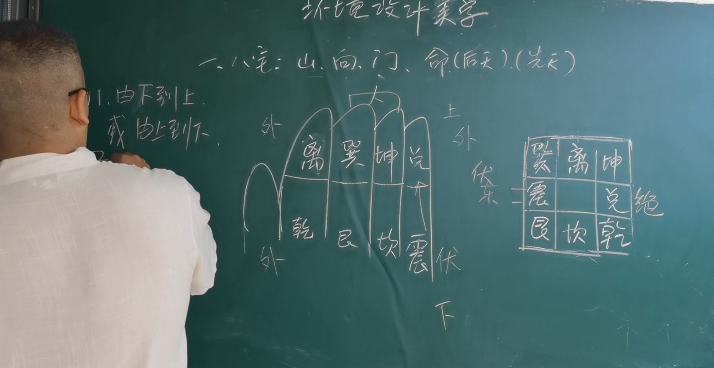 环境设计美学
一、八宅：山、向、门、命(后天).(先天)
1.由下到上.
或由上到下.
外 上
外
离 巽 坤 兑
乾 艮 坎 震 伏
外
下
巽 离 坤
伏 震 兑 绝
艮 坎 乾